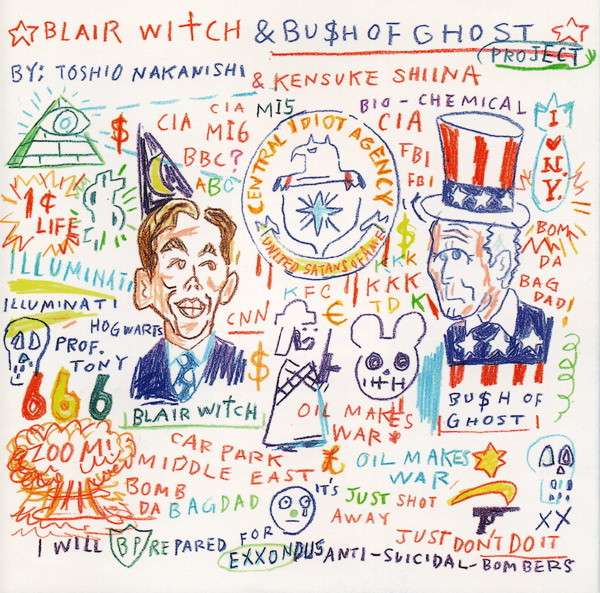 BLAIR WITCH & BU$H OF GHOST
PROJECT
BY: TOSHIO NAKANISHI
& KENSUKE SHIINA
CIA MI5
CIA MI6
BBC?
ABC
CENTRAL IDIOT AGENCY
UNITED SATANS OF AME
BIO-CHEMICAL
CIA
FBI
FBI
I ♥ N.Y.
$
1¢
LIFE
$
ILLUMINATI
ILLUMINATI
HOGWARTS
PROF.
TONY
666
BLAIR WITCH
CNN
$
KFC
€
$
KKK
KKK
TDK
BOM
DA
BAG
DAD!
BU$H OF
GHOST!
OIL MAKES
WAR
ZOOM!
CAR PARK
MIDDLE EAST
BOMB
DA BAGDAD
£
OIL MAKES
WAR
IT'S JUST SHOT
AWAY
XX
JUST DON'T DO IT
I WILL BP REPARED FOR
EXXONDUS ANTI-SUICIDAL-BOMBERS